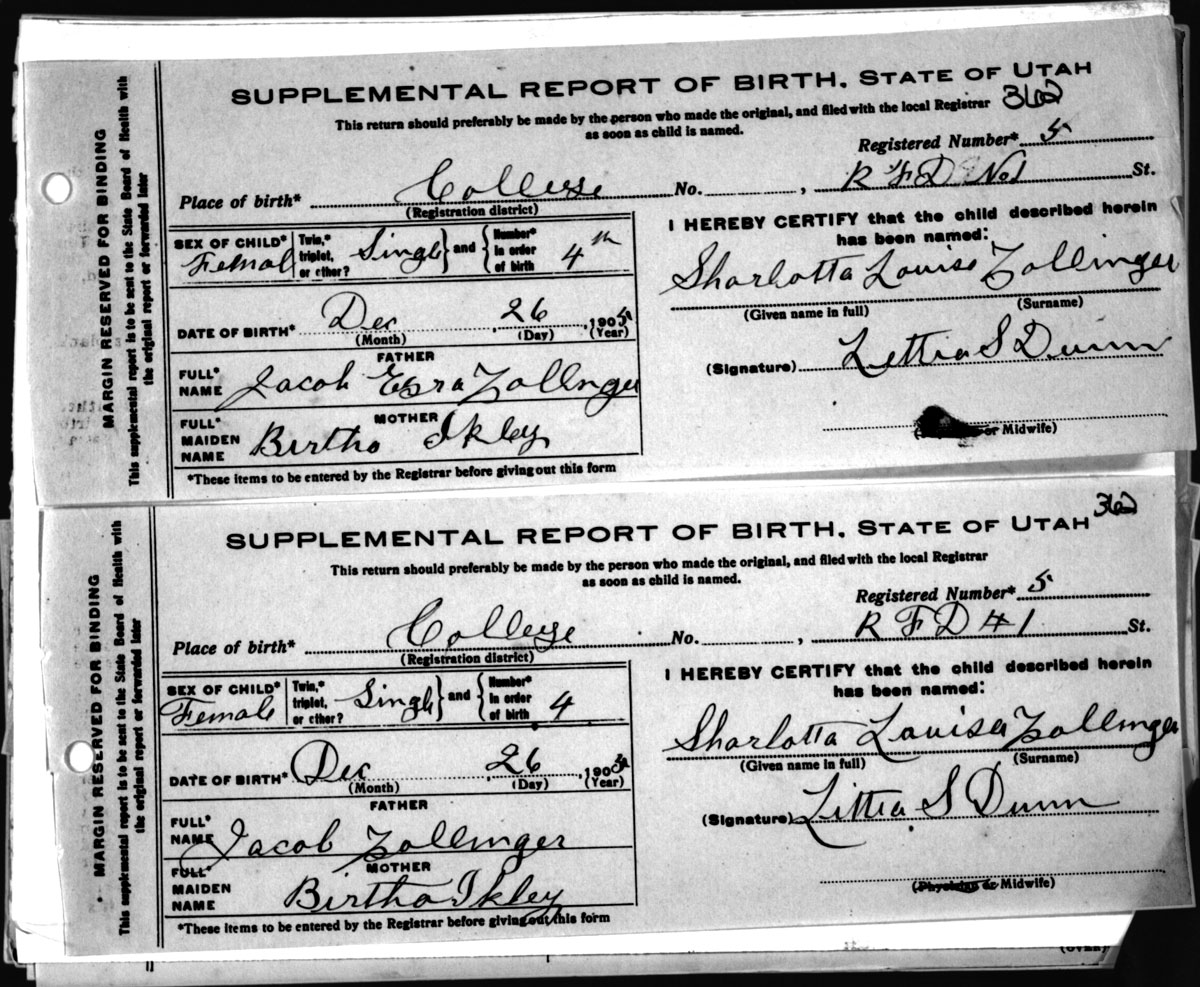 SUPPLEMENTAL REPORT OF BIRTH, STATE OF UTAH
362
This return should preferably be made by the person who made the original, and filed with the local Registrar
as soon as child is named.
Registered Number* 5
Place of birth* College No. , R F D No1 St.
(Registration district)
SEX OF CHILD* Femal Twin, triplet, or other? Singl and Number* in order of birth 4th
DATE OF BIRTH* Dec 26, 1905
(Month) (Day) (Year)
FATHER
FULL* NAME Jacob Ezra Zollnger
MOTHER
FULL* MAIDEN NAME Birtha Ikley
*These items to be entered by the Registrar before giving out this form
I HEREBY CERTIFY that the child described herein
has been named:
Sharlotta Louise Zollinger
(Given name in full) (Surname)
(Signature) Littia S Dunn
or Midwife)
MARGIN RESERVED FOR BINDING
This supplemental report is to be sent to the State Board of Health with
the original report or forwarded later
SUPPLEMENTAL REPORT OF BIRTH, STATE OF UTAH
362
This return should preferably be made by the person who made the original, and filed with the local Registrar
as soon as child is named.
Registered Number* 5
Place of birth* College No. , R F D #1 St.
(Registration district)
SEX OF CHILD* Female Twin,* triplet, or other? Singl and Number* in order of birth 4
DATE OF BIRTH* Dec , 26 , 1905
(Month) (Day) (Year)
FATHER
FULL* NAME Jacob Zollinger
MOTHER
FULL* MAIDEN NAME Birtha Ikley
*These items to be entered by the Registrar before giving out this form
I HEREBY CERTIFY that the child described herein
has been named:
Sharlotta Louisa Zollinger
(Given name in full) (Surname)
(Signature) Littia S Dunn
(Physician or Midwife)
MARGIN RESERVED FOR BINDING
This supplemental report is to be sent to the State Board of Health with
the original report or forwarded later
(OVER)